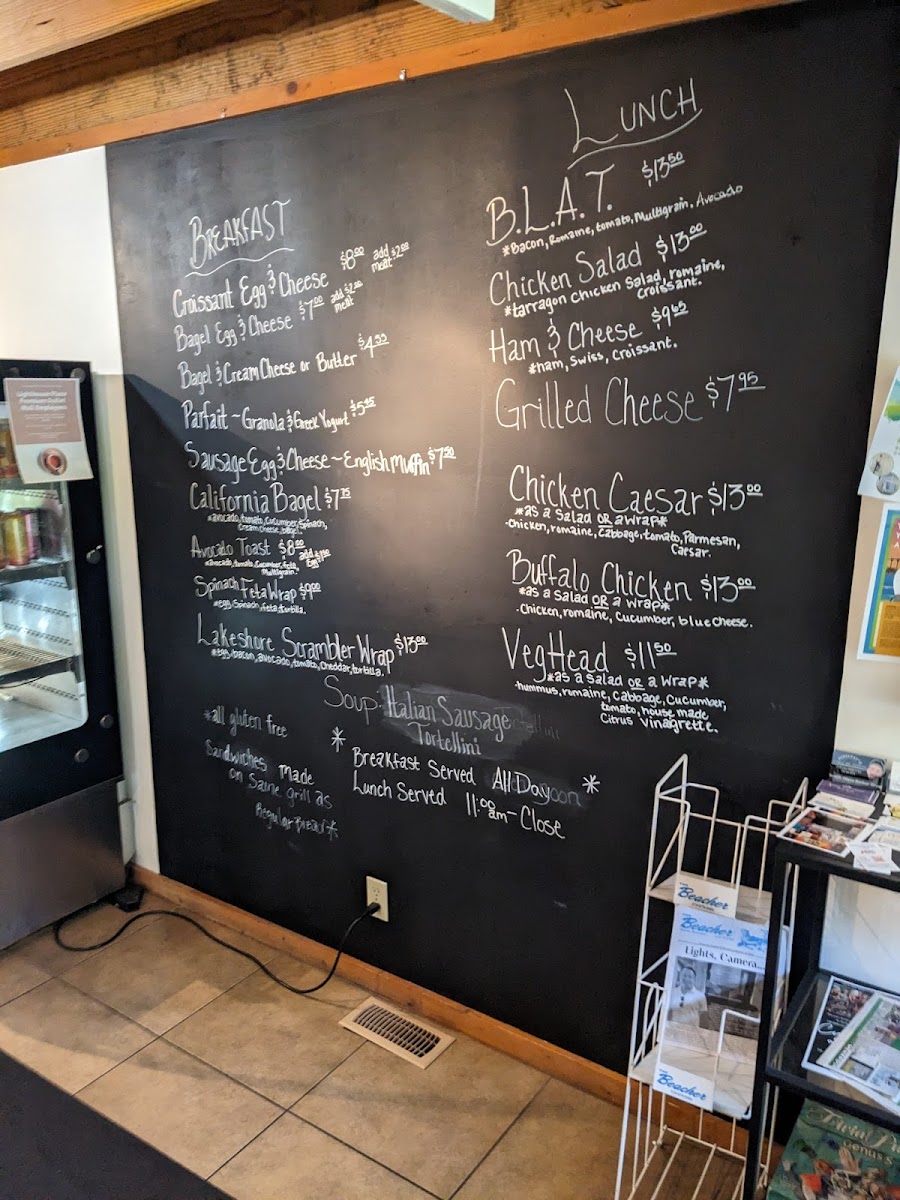 BREAKFAST
Croissant Egg & Cheese $8.00 add meat $2.00
Bagel Egg & Cheese $7.00 add meat $2.00
Bagel & Cream Cheese or Butter
Parfait ~ Granola & Greek Yogurt
Sausage Egg & Cheese ~ English Muffin $7.50
California Bagel $7.75
*avocado, tomato, cucumber, spinach,
cream cheese, bagel.
Avocado Toast $8.00 add Egg
*avocado, tomato, cucumber, feta,
Multigrain.
Spinach Feta Wrap
*egg, spinach, feta, tortilla.
Lakeshore Scrambler Wrap $13.00
*egg, bacon, avocado, tomato, cheddar, tortilla.
LUNCH
B.L.A.T. $13.50
*Bacon, Romaine, tomato, Multigrain, Avocado
Chicken Salad $13.00
*tarragon chicken salad, romaine,
croissant.
Ham & Cheese $9.65
*ham, Swiss, croissant.
Grilled Cheese $7.95
Chicken Caesar $13.00
*as a Salad OR a wrap*
-Chicken, romaine, Cabbage, tomato, Parmesan,
Caesar.
Buffalo Chicken $13.00
*as a Salad OR a wrap*
-Chicken, romaine, Cucumber, blue cheese.
VegHead $11.50
*as a Salad OR a wrap*
-hummus, romaine, Cabbage, Cucumber,
tomato, house made
Citrus Vinagrette.
Soup- Italian Sausage
Tortellini
*all gluten free
Sandwiches made
on Same grill as
Regular Bread*
* Breakfast Served All Day *
Lunch Served 11:00 am - Close
Beacher
Beacher
Lights, Camera...
Beacher
Trivial Pursuit
GENUS